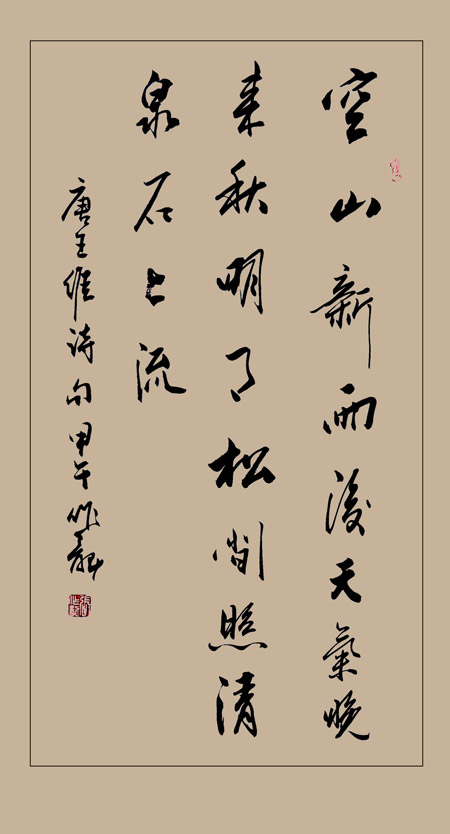 空山新雨後天氣晚
来秋明月松間照清
泉石上流
唐王維詩句甲午作